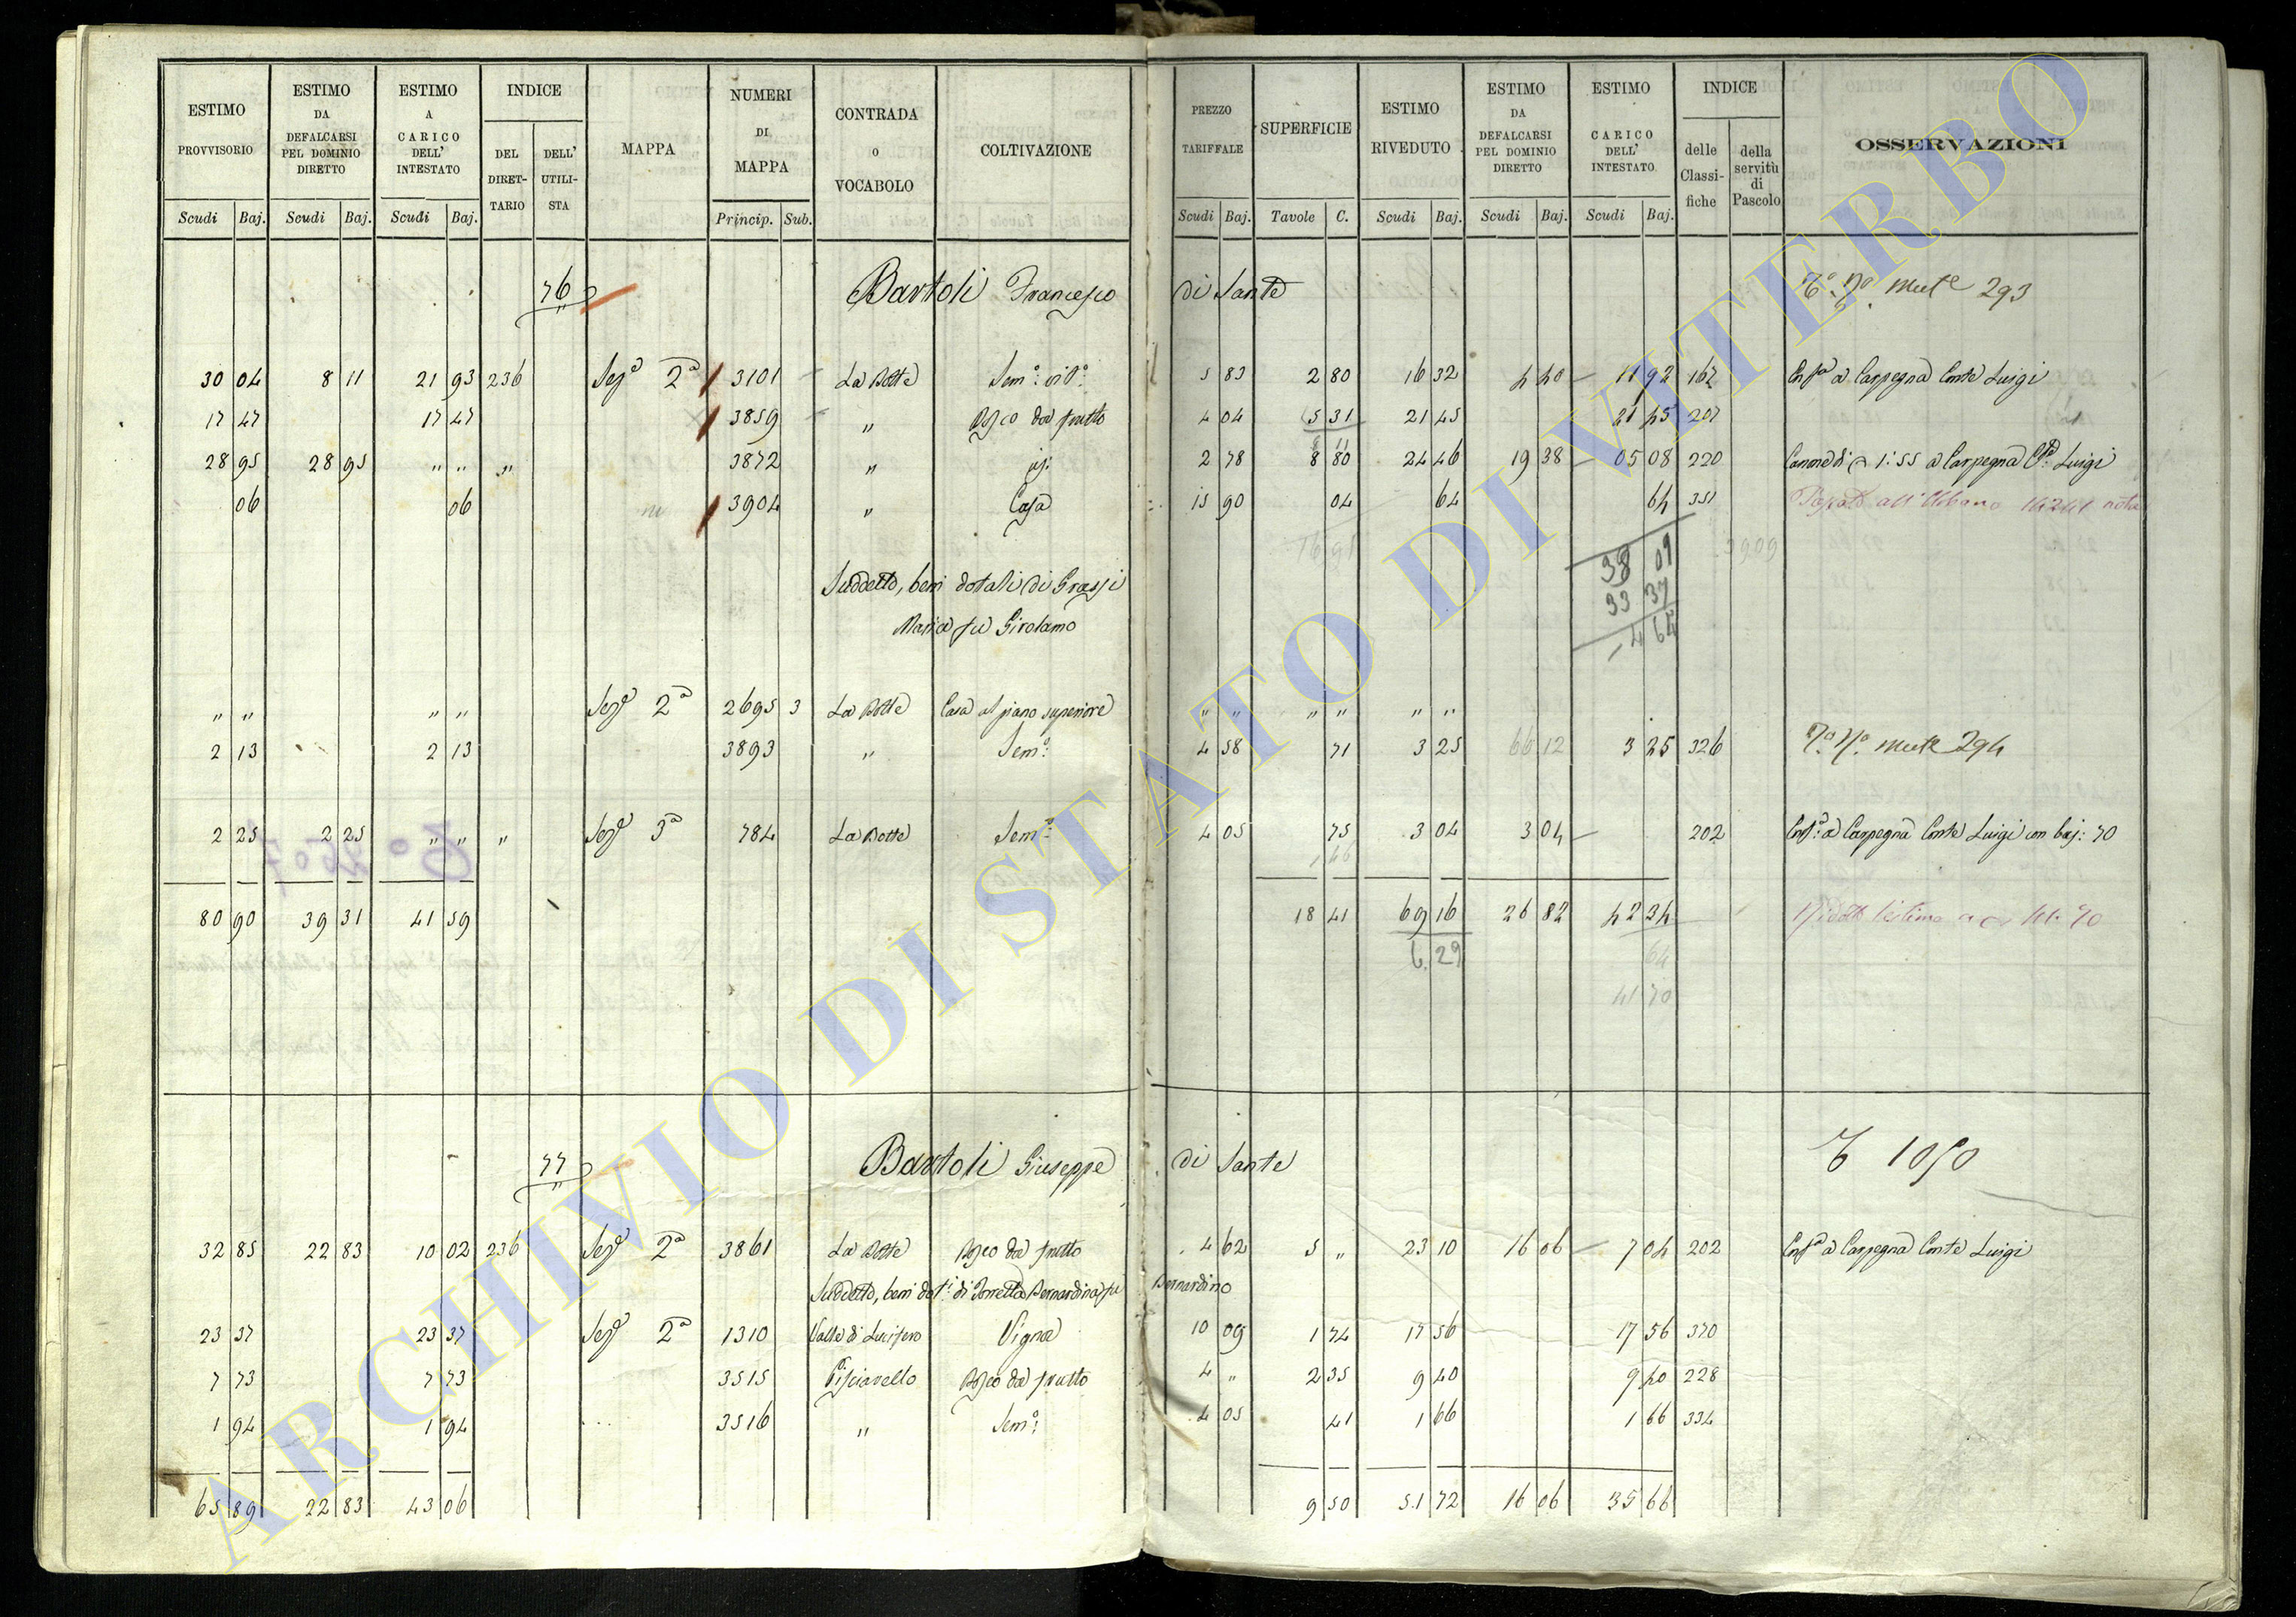 ESTIMO PROVVISORIO | ESTIMO DA DEFALCARSI PEL DOMINIO DIRETTO | ESTIMO A CARICO DELL' INTESTATO | INDICE | MAPPA | NUMERI DI MAPPA | CONTRADA O VOCABOLO | COLTIVAZIONE | PREZZO TARIFFALE | SUPERFICIE | ESTIMO RIVEDUTO | ESTIMO DA DEFALCARSI PEL DOMINIO DIRETTO | ESTIMO CARICO DELL' INTESTATO | INDICE | OSSERVAZIONI
DEL DIRET-TARIO | DELL' UTILI-STA | delle Classi-fiche | della servitù di Pascolo
Scudi Baj. | Scudi Baj. | Scudi Baj. | Princip. Sub. | Scudi Baj. | Tavole C. | Scudi Baj. | Scudi Baj. | Scudi Baj.
76 Bartoli Francesco di Sante 293
30 04 | 8 11 | 21 93 | 236 | Sez.ª 2ª | 3101 | La Botte | Sem.º vit.º | 5 83 | 2 80 | 16 32 | 4 40 | 11 92 | 167 | Enf.ª a Carpegna Conte Luigi
17 47 | 17 47 | 3859 | " | Bosco da frutto | 4 04 | 5 31 | 21 45 | 21 45 | 207
8 11
28 95 | 28 95 | " " | " | 3872 | " | id: | 2 78 | 8 80 | 24 46 | 19 38 | 05 08 | 220 | Canone di 1:55 a Carpegna Luigi
06 | 06 | 3904 | " | Casa | 15 90 | 04 | 64 | 64 | 351 | all'Urbano
38 09
33 37
4 64
Suddetto, beni dotali di Grassi
Maria fu Girolamo
" " | " " | Sez.ª 2ª | 2695 3 | La Botte | Casa al piano superiore | " " | " " | " "
2 13 | 2 13 | 3893 | " | Sem.º | 4 58 | 71 | 3 25 | 66 12 | 3 25 | 326 | 294
2 25 | 2 25 | " " | " | Sez.ª 3ª | 784 | La Botte | Sem.º | 4 05 | 75 | 3 04 | 3 04 | 202 | Enf.ª a Carpegna Conte Luigi con baj: 70
80 90 | 39 31 | 41 59 | 18 41 | 69 16 | 26 82 | 42 34
6 29 | 64
41 70
77 Bartoli Giuseppe di Sante 1050
32 85 | 22 83 | 10 02 | 236 | Sez.ª 2ª | 3861 | La Botte | Bosco da frutto | 4 62 | 5 " | 23 10 | 16 06 | 7 04 | 202 | Enf.ª a Carpegna Conte Luigi
Suddetto, beni dot.i di Porretta Bernardina fu Bernardino
23 37 | 23 37 | Sez.ª 2ª | 1310 | Valle di Lucifero | Vigna | 10 09 | 1 74 | 17 56 | 17 56 | 370
7 73 | 7 73 | 3515 | Pisciarello | Bosco da frutto | 4 " | 2 35 | 9 40 | 9 40 | 228
1 94 | 1 94 | 3516 | " | Sem.º | 4 05 | 41 | 1 66 | 1 66 | 334
65 89 | 22 83 | 43 06 | 9 50 | 51 72 | 16 06 | 35 66
ARCHIVIO DI STATO DI VITERBO